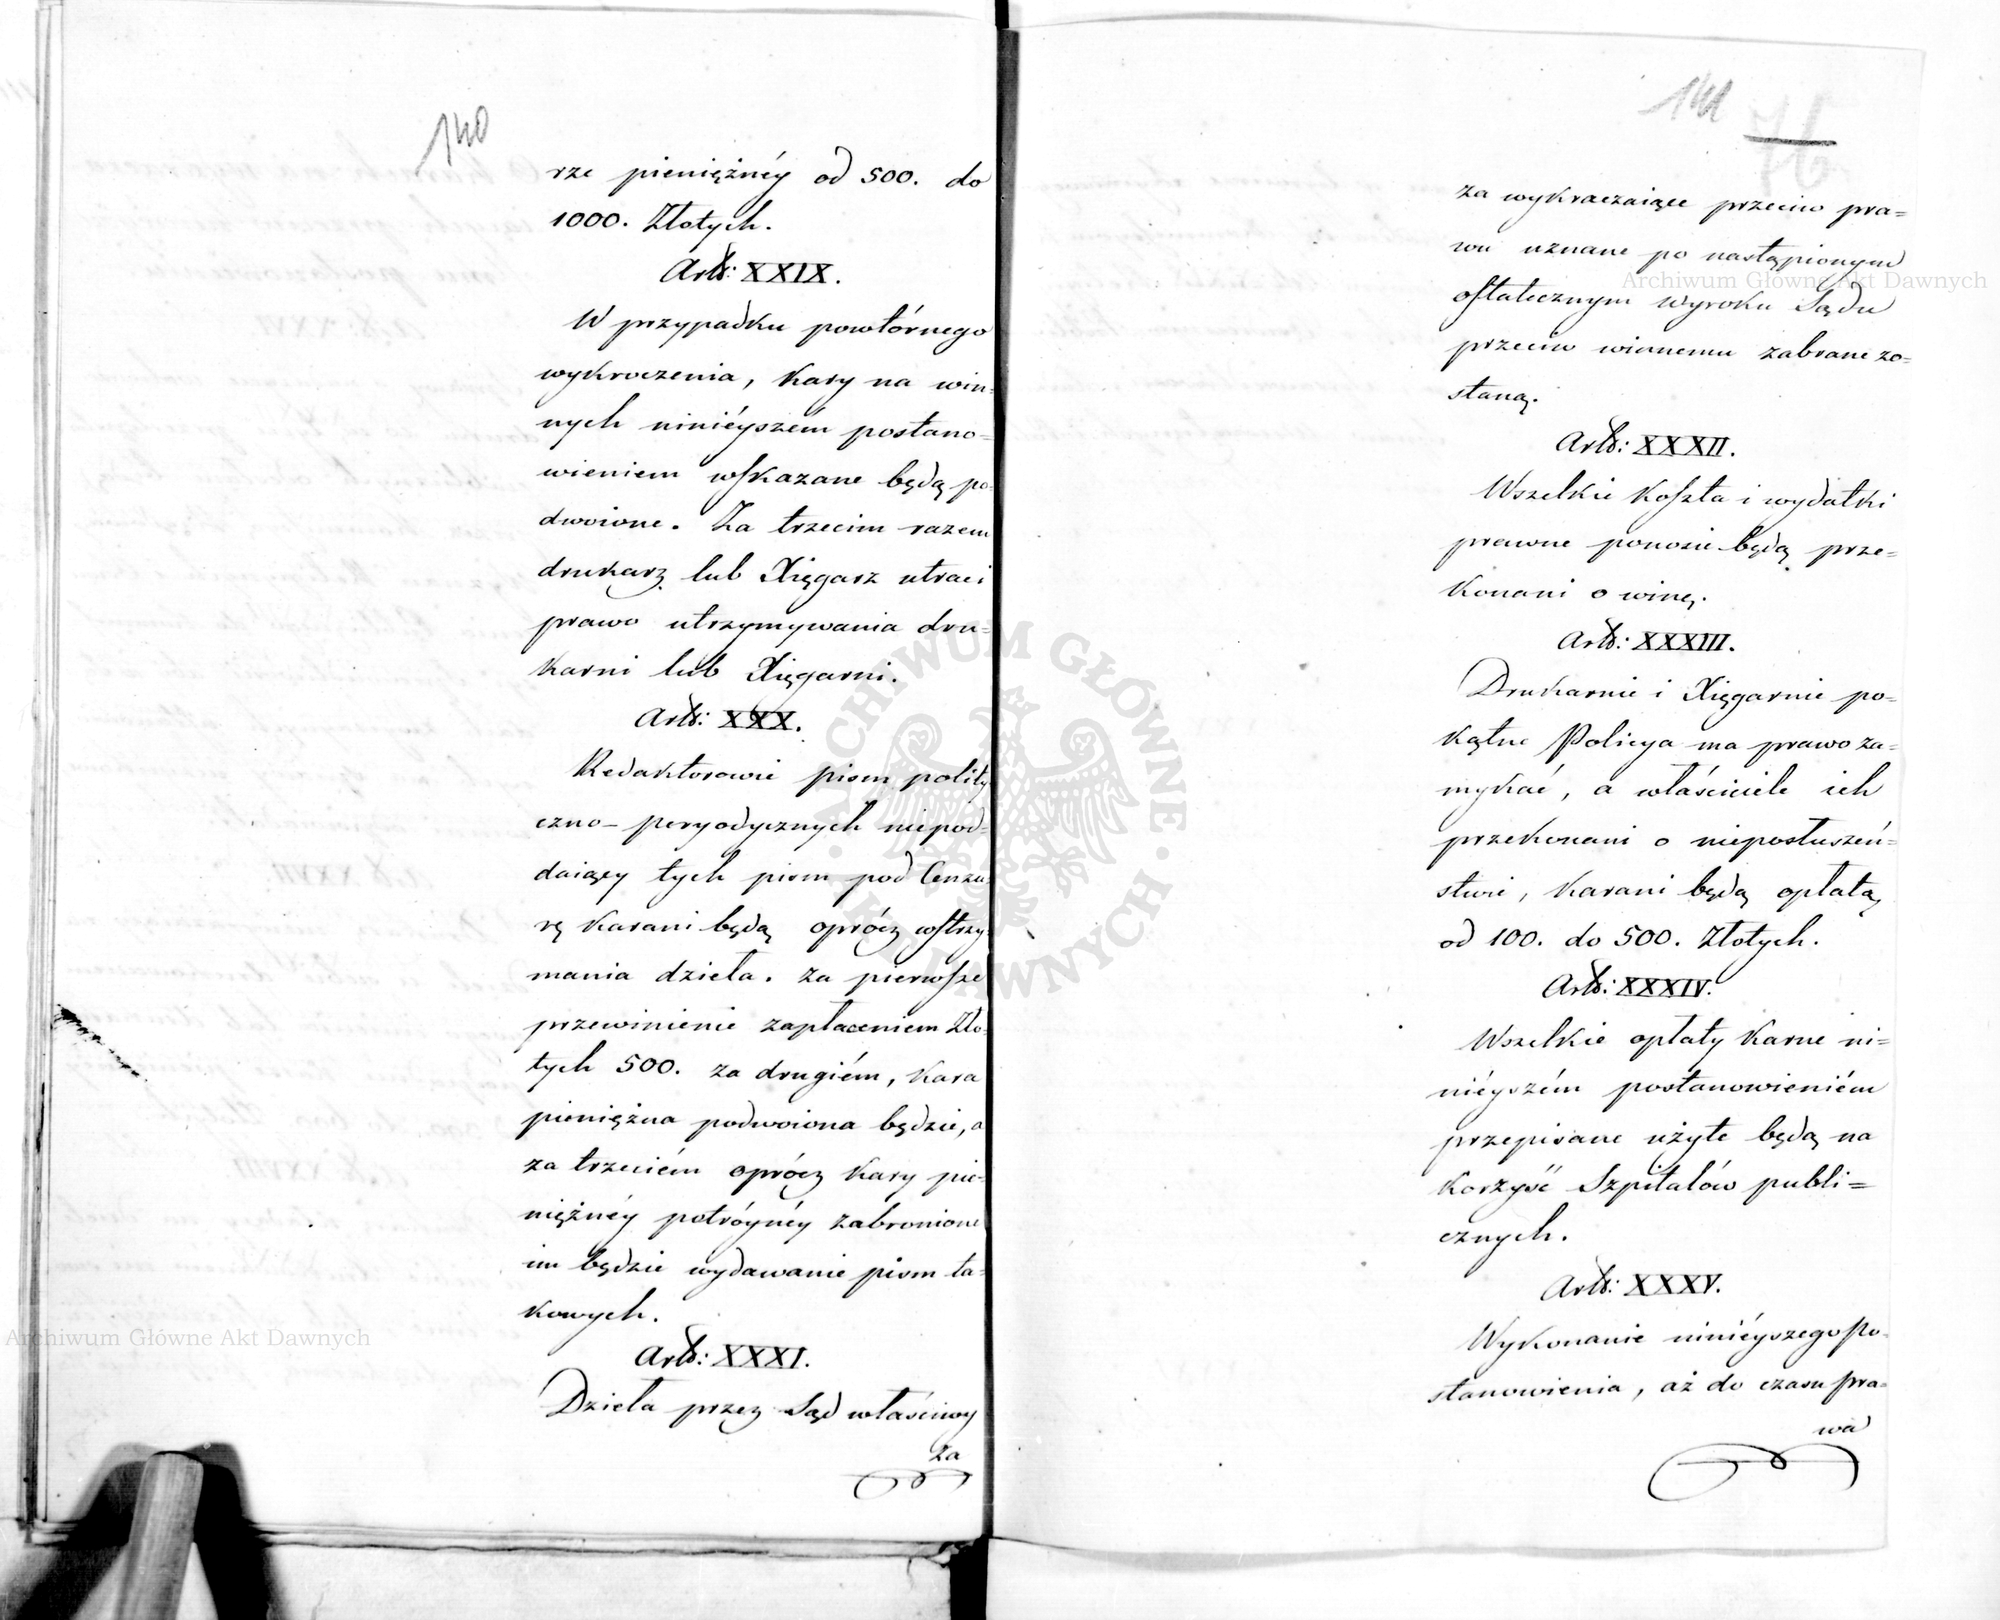 140
rze pieniężnéy od 500. do
1000. Złotych.
Artł: XXIX.
W przypadku powtórnego
wykroczenia, kary na win-
nych ninieyszém postano-
wieniem wskazane będą po-
dwoione. Za trzecim razem
drukarz lub Xięgarz utraci
prawo utrzymywania dru-
karni lub Xięgarni.
Artł: XXX.
Redaktorowie pism polity
czno-peryodycznych niepod-
daiący tych pism pod Cenzu-
rę karani będą oprócz wstrzy-
mania dzieła. za pierwsze
przewinienie zapłaceniem Zło-
tych 500. za drugiém, kara
pieniężna podwoiona będzie, a
za trzeciém oprócz kary pie-
niężnéy potróynéy zabronione
im będzie wydawanie pism ta-
kowych.
Artł: XXXI.
Dzieła przez Sąd właściwy
za
141
76
za wykraczaiące przeciw pra-
wu uznane po nastąpionym
ostatecznym wyroku Sądu
przeciw winnemu zabrane zo-
staną.
Artł: XXXII.
Wszelkie koszta i wydatki
prawne ponosić będą prze-
konani o winę.
Artł: XXXIII.
Drukarnie i Xięgarnie po-
kątne Policya ma prawo za-
mykać, a właściciele ich
przekonani o nieposłuszeń-
stwie, karani będą opłatą
od 100. do 500. Złotych.
Artł: XXXIV.
Wszelkie opłaty karne ni-
niéyszém postanowieniém
przepisane użyte będą na
korzyść Szpitalów publi=
cznych.
Artł: XXXV.
Wykonanie niniéyszego Po-
stanowienia, aż do czasu pra-
wa
Archiwum Główne Akt Dawnych
Archiwum Główne Akt Dawnych
ARCHIWUM GŁÓWNE AKT DAWNYCH